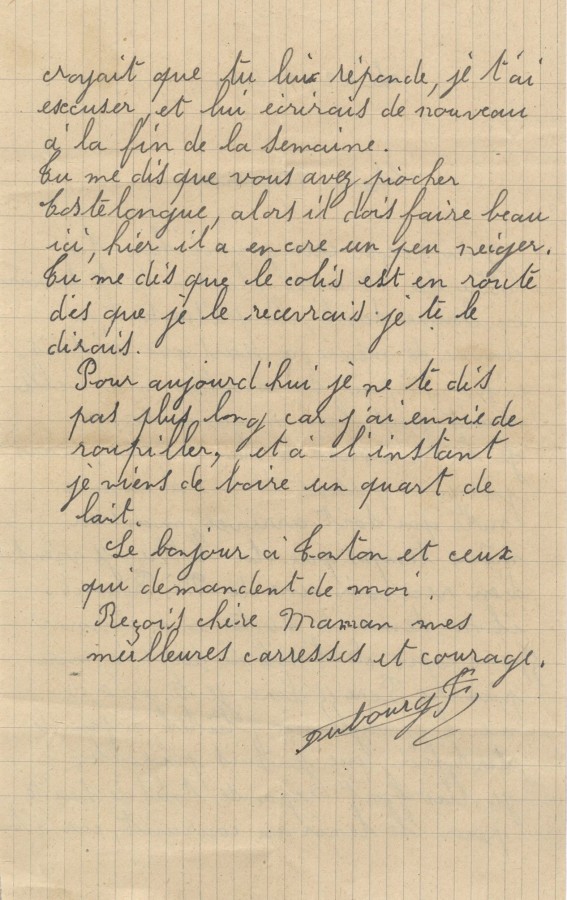 croyait que tu lui réponde, je t'ai
escuser, et lui écrirais de nouveau
à la fin de la semaine.
Tu me dis que vous avez piocher
Costelongue, alors il dois faire beau
ici, hier il a encore un peu neiger.
Tu me dis que le colis est en route
dès que je le recevrais je te le
dirais.
Pour aujourd'hui je ne te dis
pas plus long car j'ai envie de
roupiller, et à l'instant
je viens de boire un quart de
lait.
Le bonjour à Tonton et ceux
qui demandent de moi.
Reçois chère Maman mes
meilleures carresses et courage.
Dubourg F